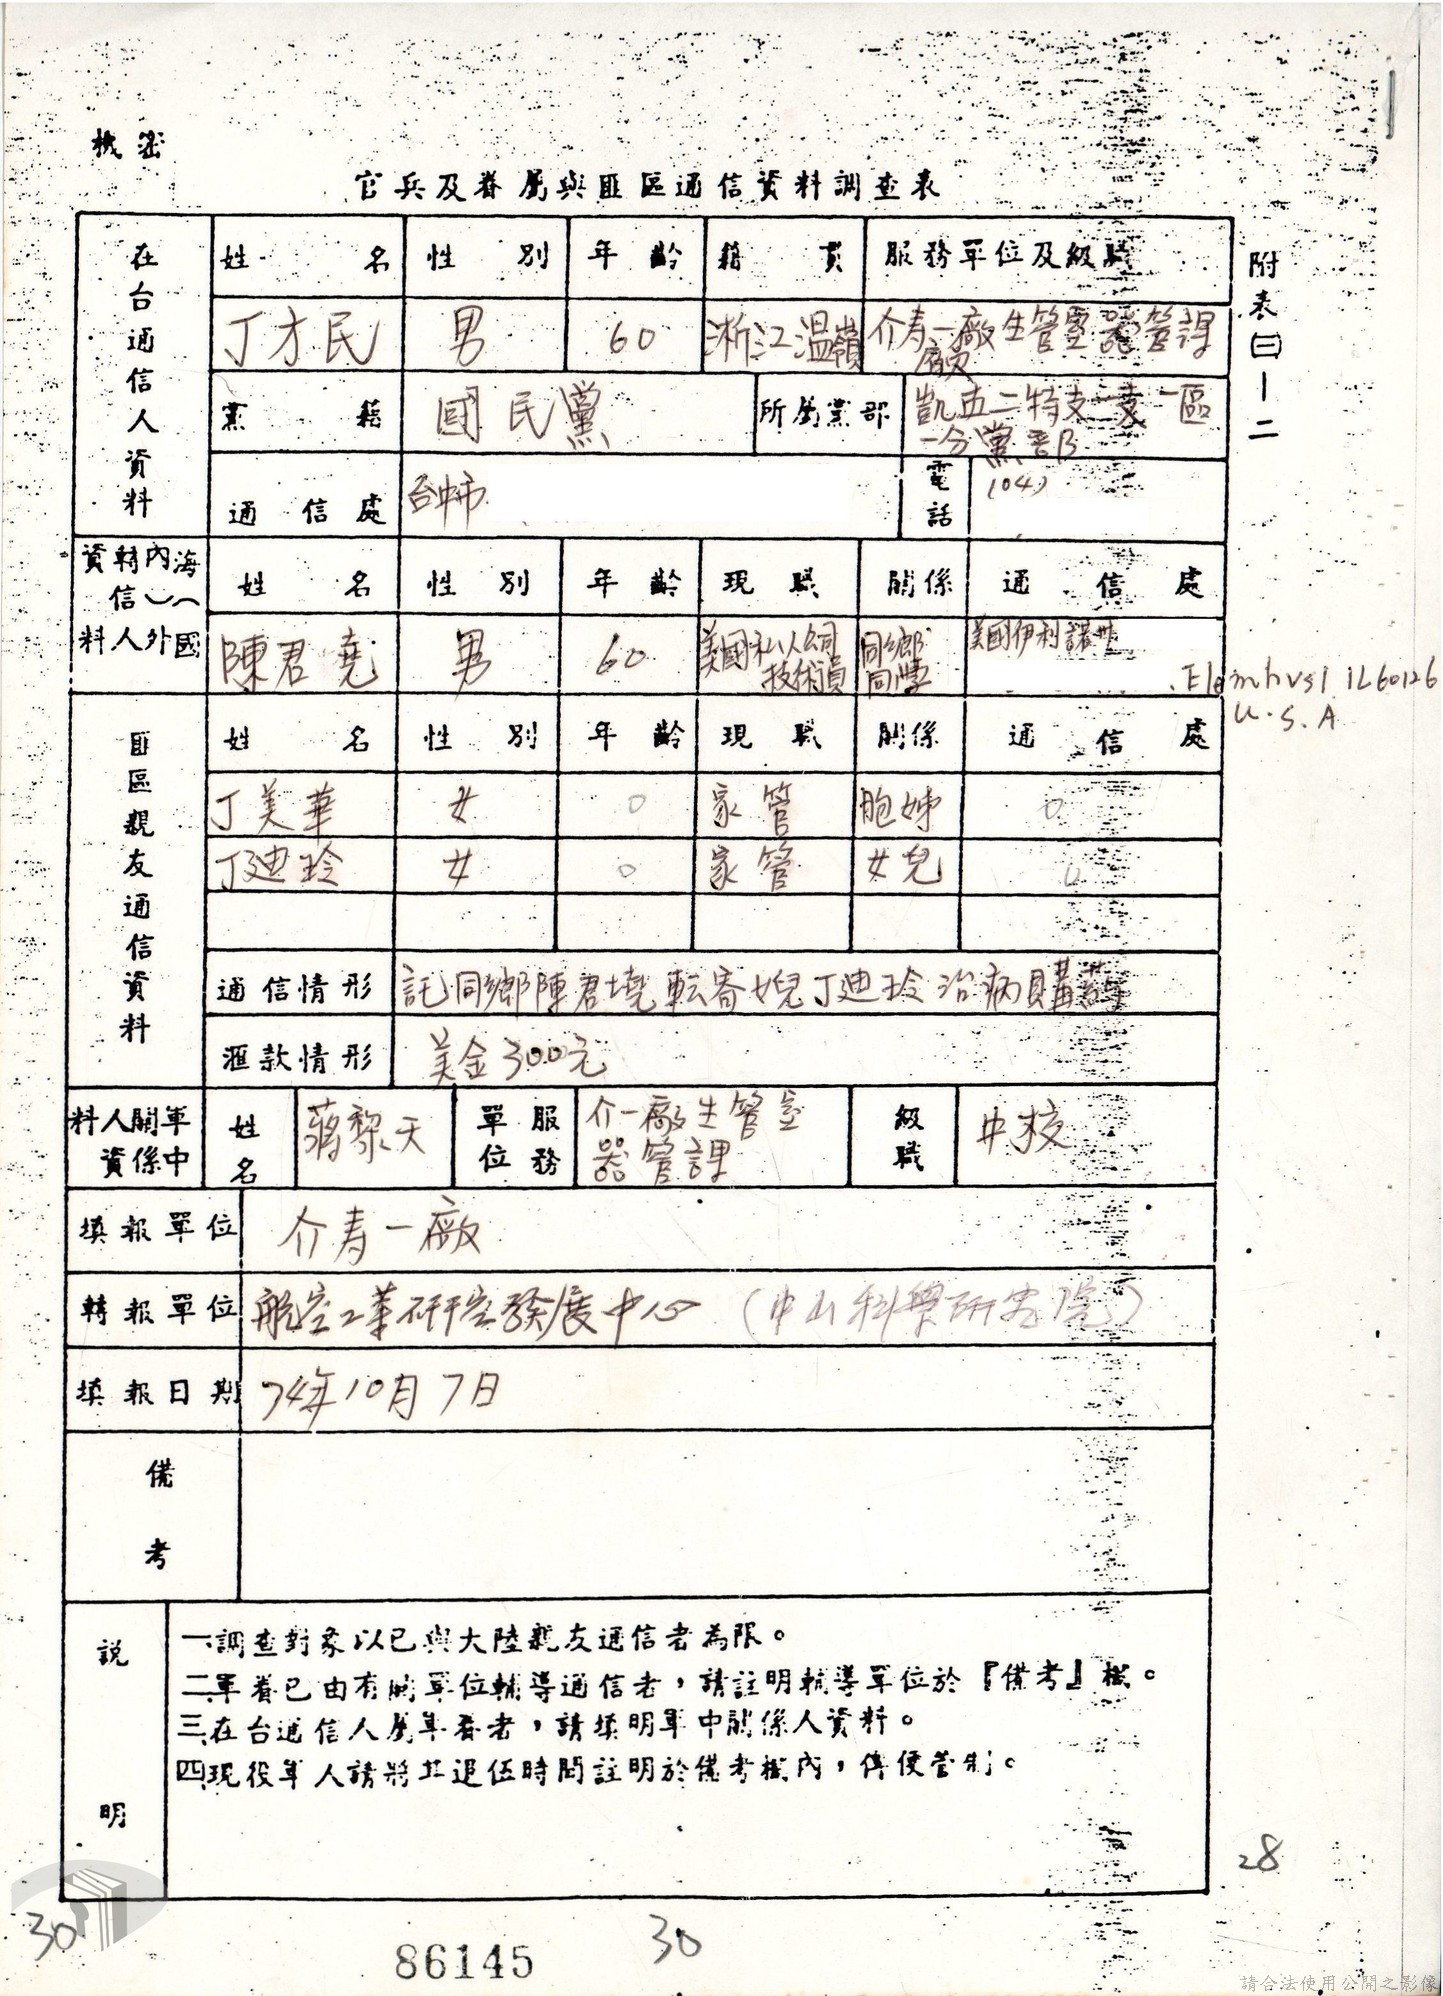 機密
官兵及眷屬與匪區通信資料調查表
附表㈢-二
在台通信人資料
姓名 性別 年齡 籍貫 服務單位及級職
丁才民 男 60 浙江溫嶺 介壽一廠生管室器管課
廠員
黨籍 國民黨 所屬黨部 凱五二特支 一區
一分黨部
通信處 台中市 電話 (04)
海(國)內外轉信人資料
姓名 性別 年齡 現職 關係 通信處
陳君堯 男 60 美國私人公司技術員 同鄉同學 美國伊利諾州
Elemhvsl IL60126
U.S.A
匪區親友通信資料
姓名 性別 年齡 現職 關係 通信處
丁美華 女 0 家管 胞姊 0
丁迪玲 女 0 家管 女兒 0
通信情形 託同鄉陳君堯転寄女兒丁迪玲治病購葯
滙款情形 美金300元
軍中關係人資料 姓名 蔣黎天 服務單位 介一廠生管室
器管課 級職 中校
填報單位 介壽一廠
轉報單位 航空工業研究發展中心(中山科學研究院)
填報日期 74年10月7日
備考
說明
一調查對象以已與大陸親友通信者為限。
二軍眷已由有關單位輔導通信者,請註明輔導單位於『備考』欄。
三在台通信人屬軍眷者,請填明軍中關係人資料。
四現役軍人請將其退伍時間註明於備考欄內,俾便管制。
28
30
30
86145
請合法使用公開之影像